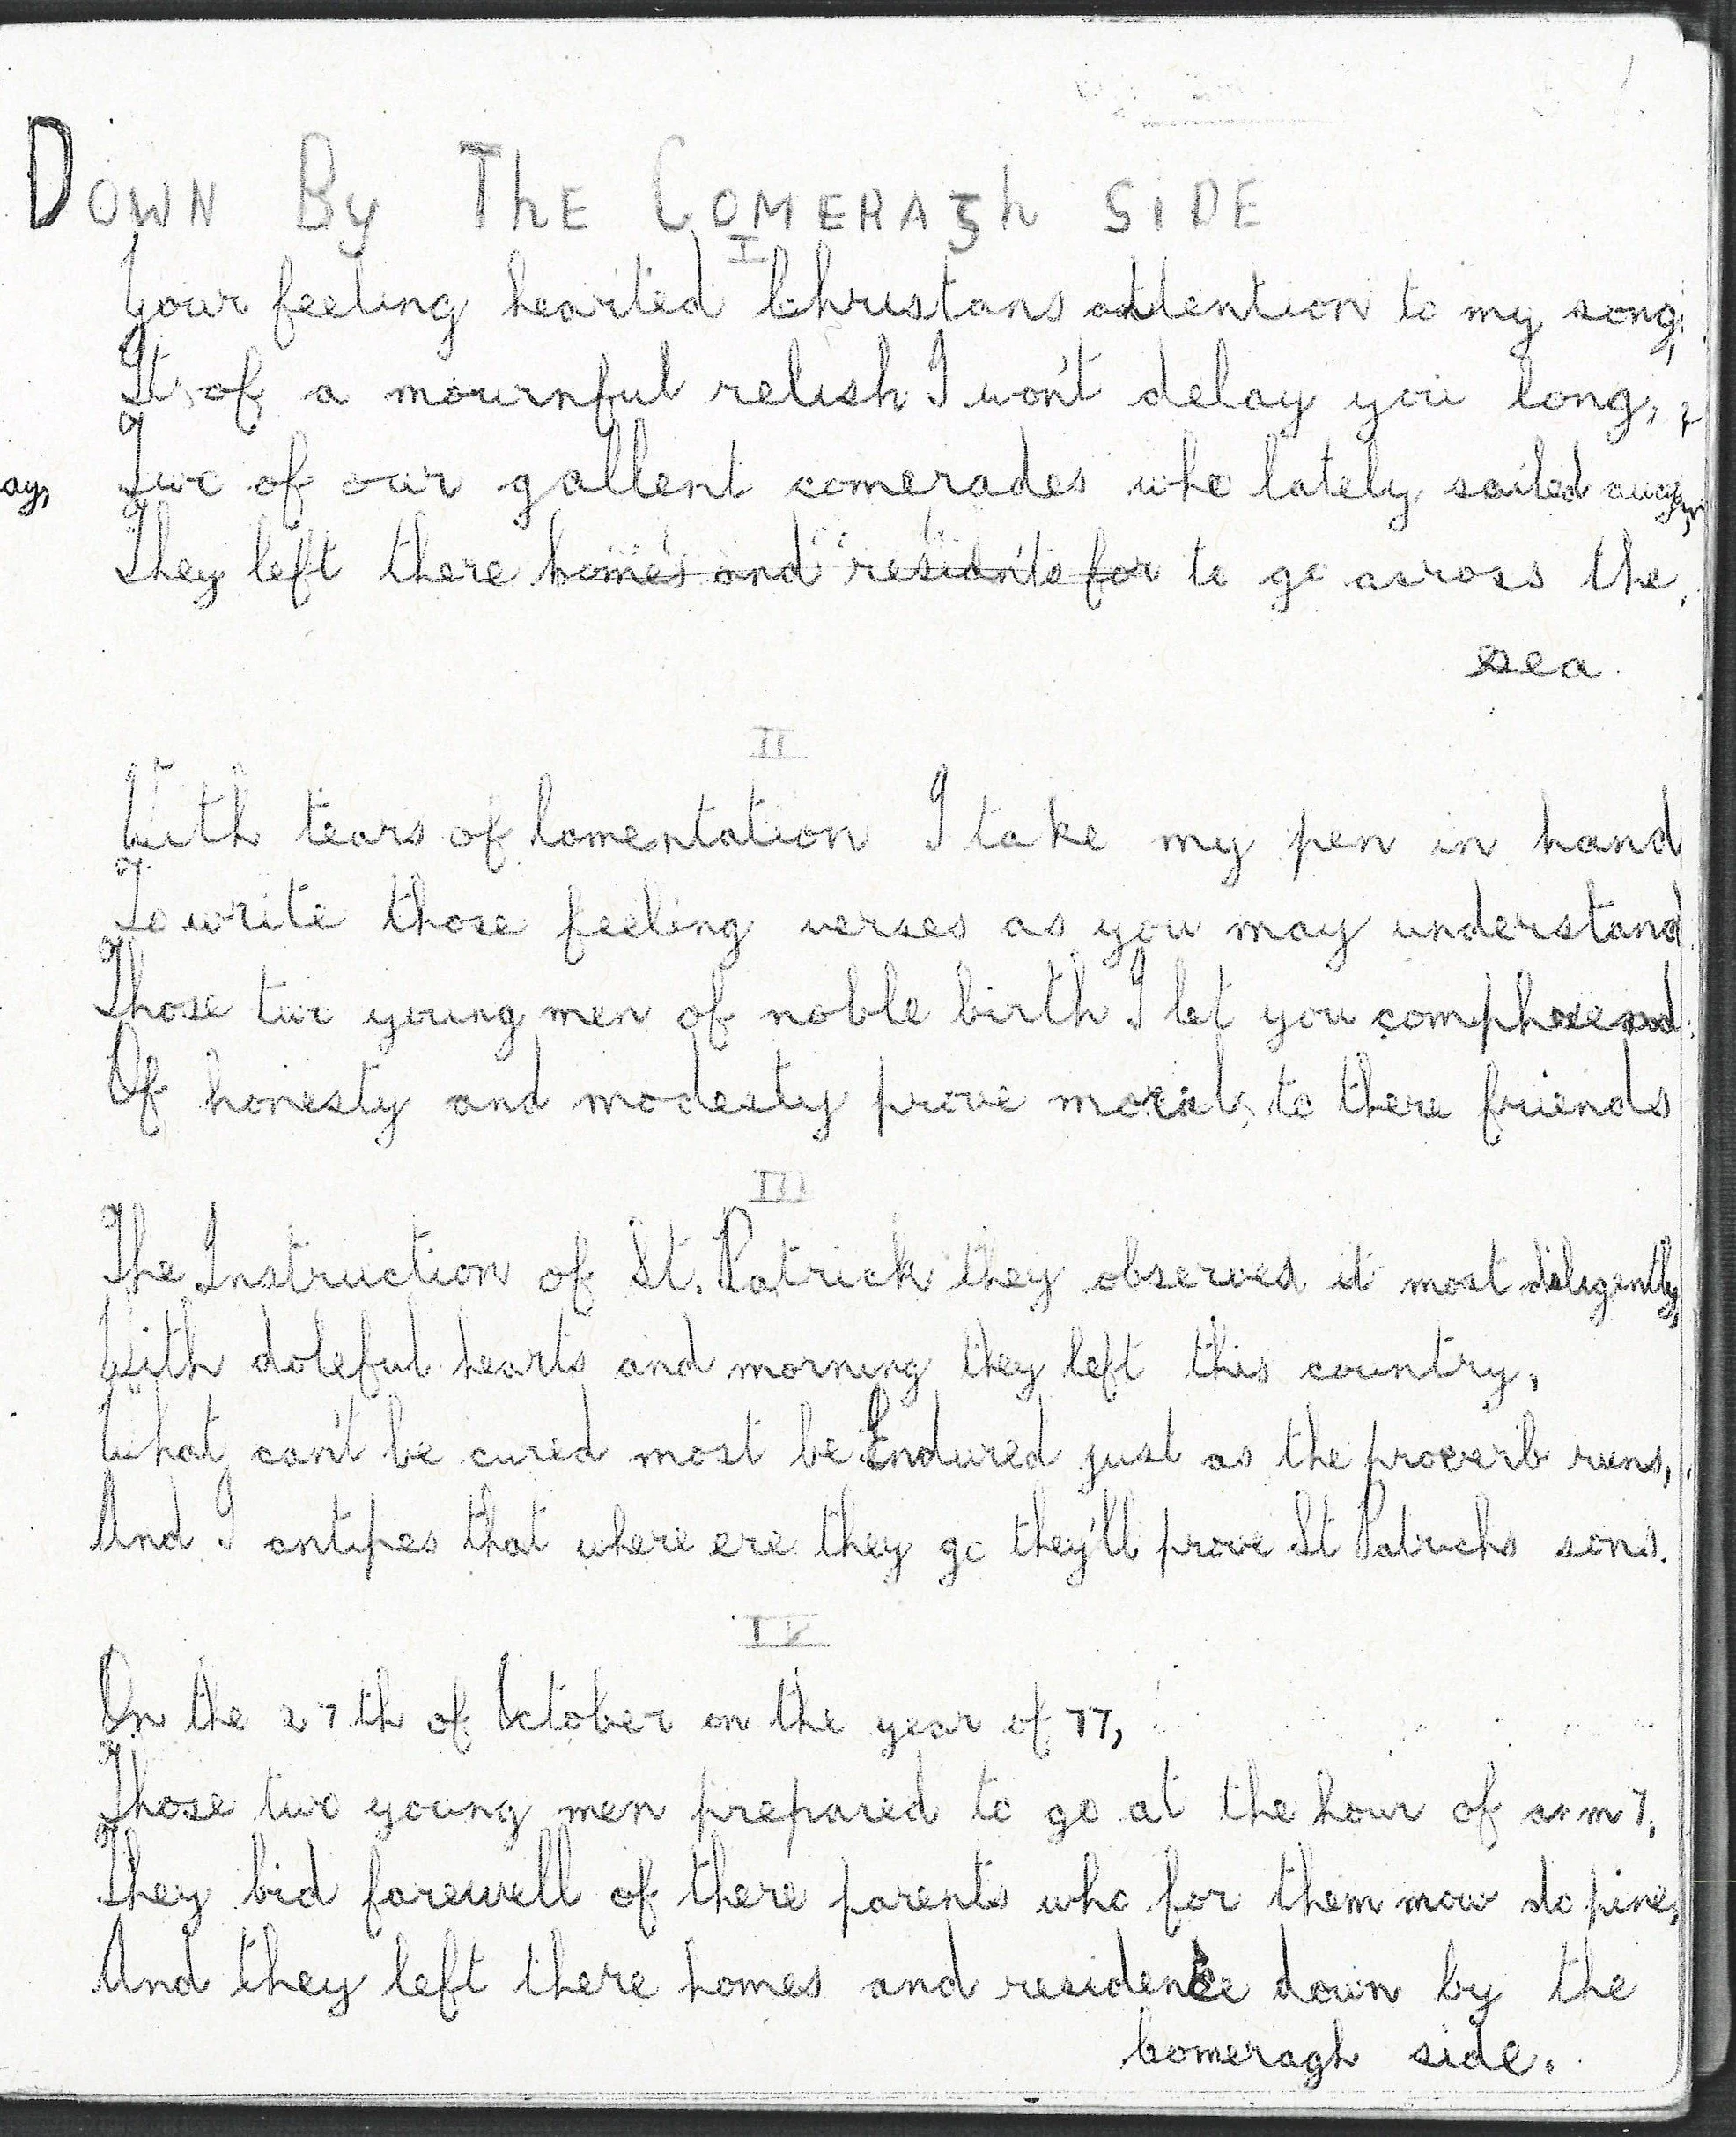 DOWN By ThE COMERAgh SiDE
I
Your feeling hearted Christans attention to my song,
Its of a mournful relish I won't delay you long,
ay, Two of our gallent comerades who lately sailed away,
They left there homes and residnts for to go across the
sea
II
With tears of lamentation I take my pen in hand
To write those feeling verses as you may understand
Those two young men of noble birth I let you
Of honesty and modesty prove morals to there friends
III
The Instruction of St. Patrick they observed it most diligently,
With doleful hearts and morning they left this country,
What can't be cured most be Endured just as the proverb runs,
And I antipes that where ere they go they'll prove St Patricks sons.
IV
On the 27th of October on the year of 77,
Those two young men prepared to go at the hour of 7,
They bid farewell of there parents who for them now do pine,
And they left there homes and residence down by the
Comeragh side.